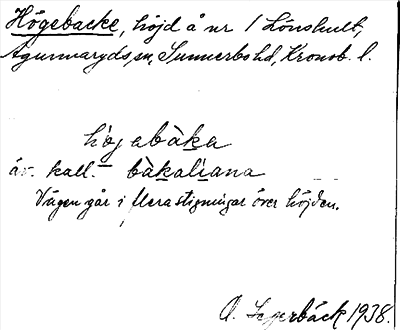 Högebacke, höjd å nr 1 Lönshult,
Agunnaryds sn, Sunnerbo hd, Kronob. l.
högabàka
äv. kall. bàkalìana
Vägen går i flera stigningar över höjden.
A. Segerbäck 1938.